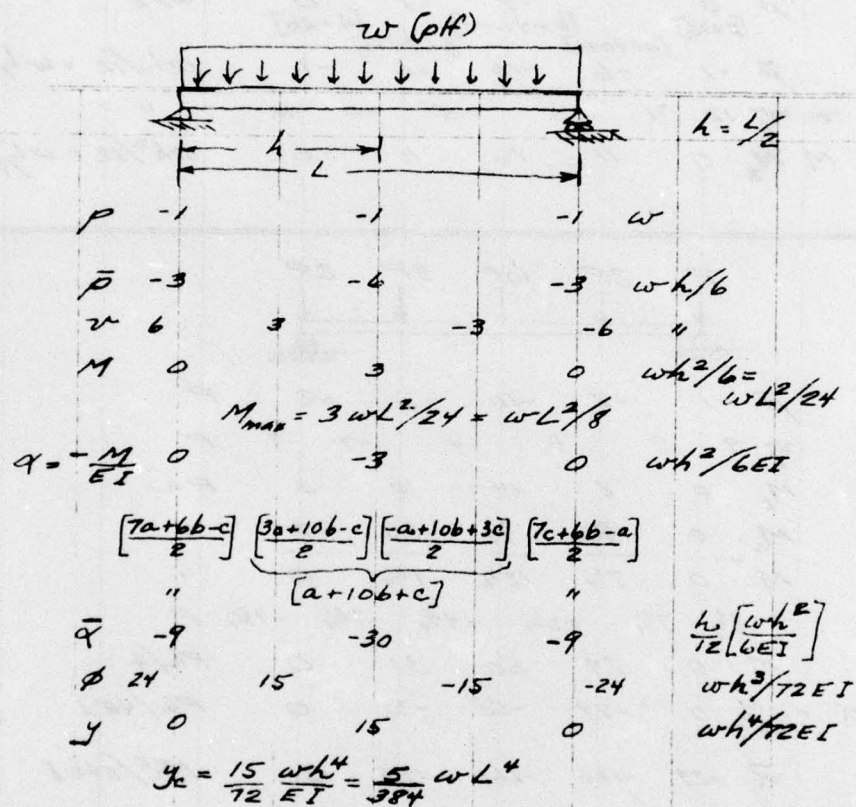 w (plf)
h = L/2
h
L
p -1 -1 -1 w
p̄ -3 -6 -3 wh/6
v 6 3 -3 -6 "
M 0 3 0 wh²/6 =
wL²/24
M_max = 3 wL²/24 = wL²/8
α = -M/EI 0 -3 0 wh²/6EI
[7a+6b-c/2] [3a+10b-c/2] [-a+10b+3c/2] [7c+6b-a/2]
" [a+10b+c] "
ᾱ -9 -30 -9 h/12 [wh²/6EI]
ø 24 15 -15 -24 wh³/72EI
y 0 15 0 wh⁴/72EI
y_c = 15/72 wh⁴/EI = 5/384 wL⁴